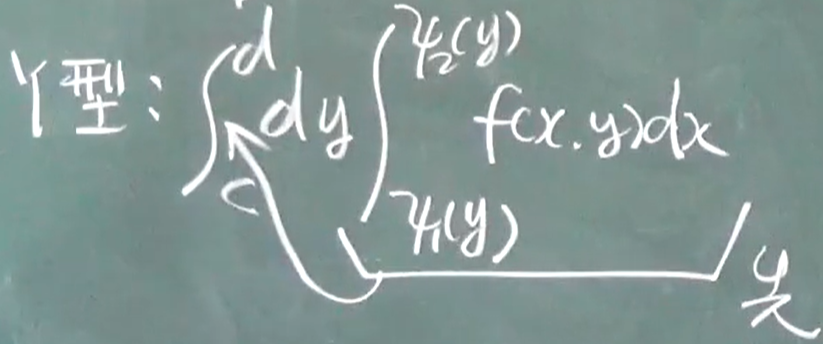 Y型: ∫_c^d dy ∫_{ψ₁(y)}^{ψ₂(y)} f(x.y)dx
先